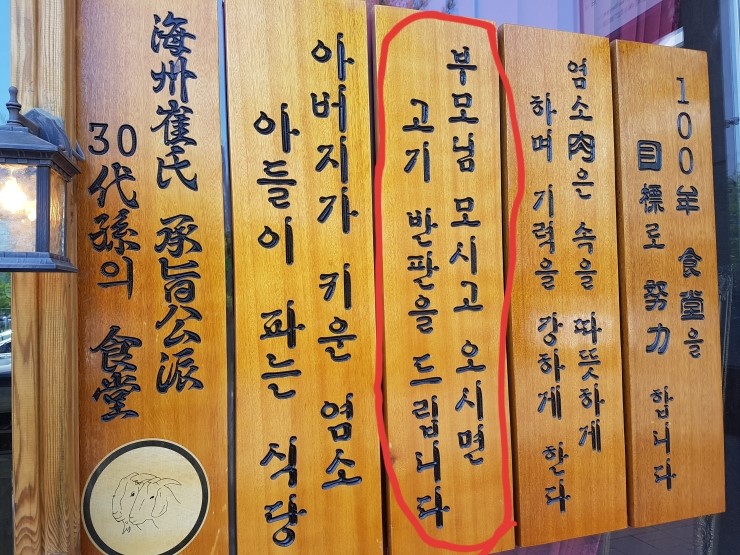 100年 食堂을
目標로 努力 합니다
염소肉은 속을 따뜻하게
하며 기력을 강하게 한다
부모님 모시고 오시면
고기 반판을 드립니다
아버지가 키운 염소
아들이 파는 식당
海州崔氏 承旨公派
30代孫의 食堂